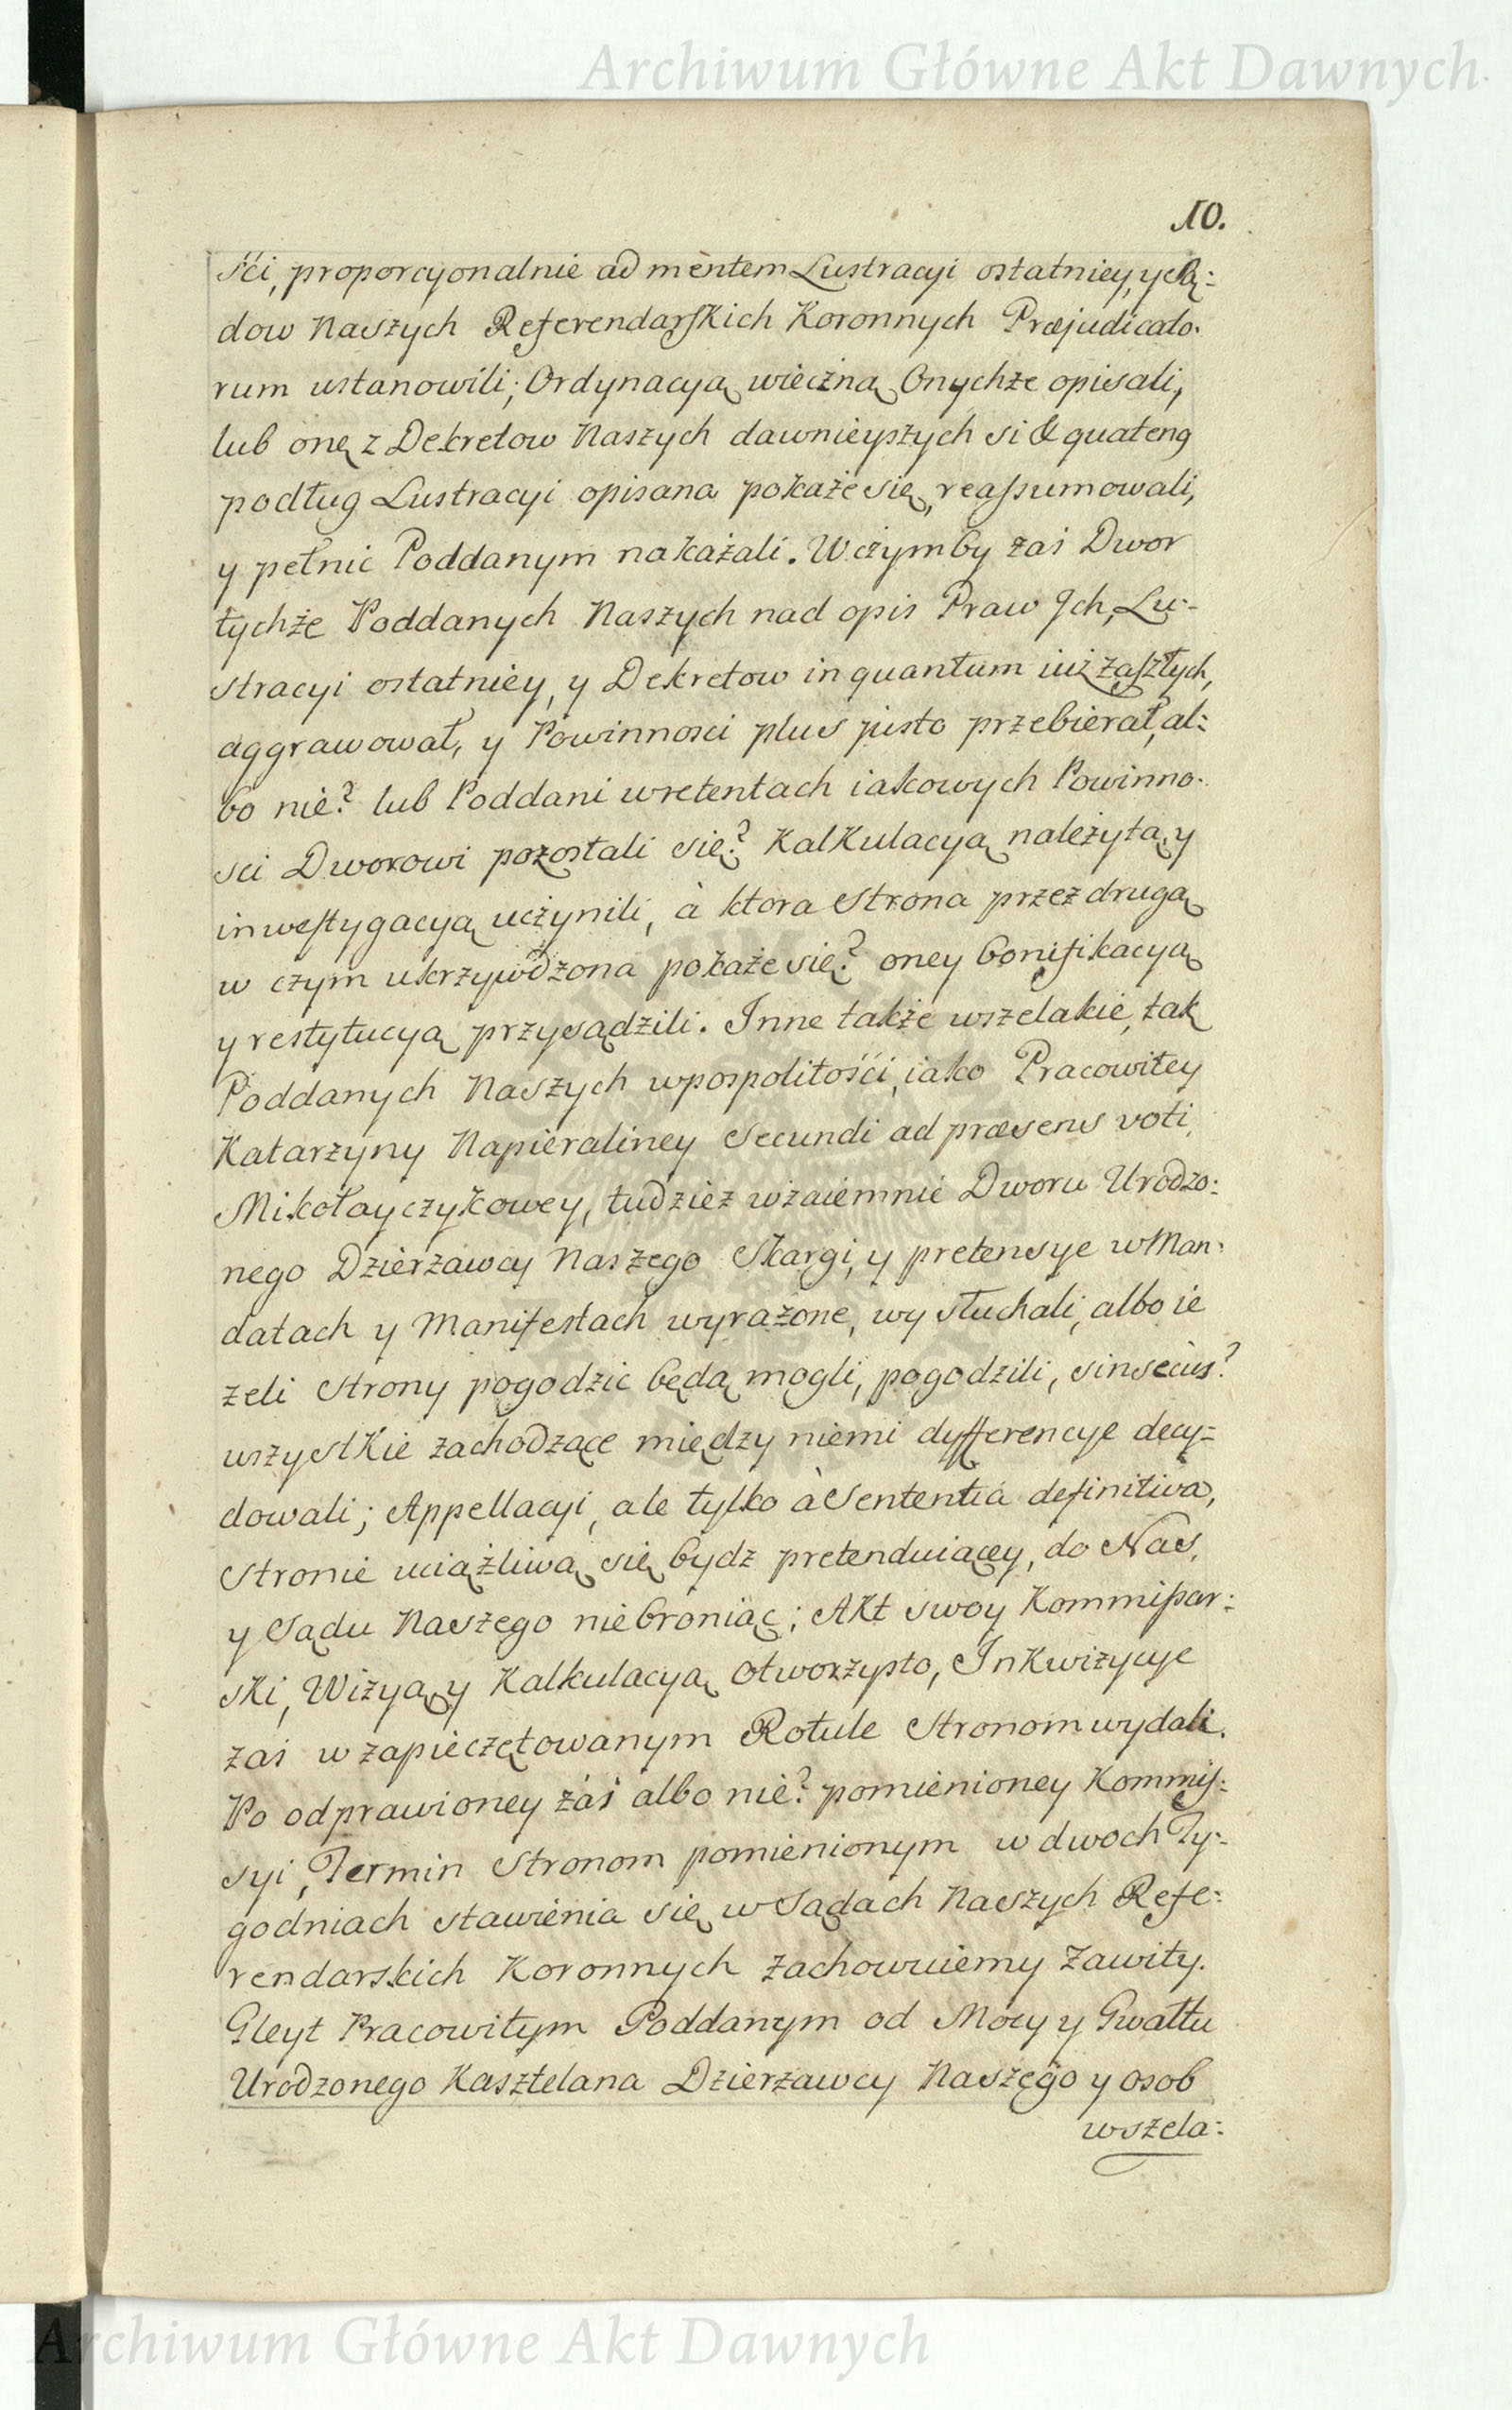 Archiwum Główne Akt Dawnych
10.
ści, proporcyonalnie ad mentem Lustracyi ostatniey, y
dow Naszych Referendarskich Koronnych Præjudicato-
rum ustanowili; Ordynacyą wieczną Onychże opisali,
lub onę z Dekretow Naszych dawnieyszych si & quateng
podług Lustracyi opisana pokaże się, reassumowali,
y pełnic Poddanym nakażali. W czymby zaś Dwor
tychże Poddanych Naszych nad opis Praw Ich, Lu-
stracyi ostatniey, y Dekretow in quantum iuż zaszłych,
aggrawował, y Powinnosci plus justo przebierał, al:
bo nie? lub Poddani w retentach iakowych Powinno-
sci Dworowi pozostali się? Kalkulacyą należytą, y
inwestygacyą uczynili, à ktora Strona przez drugą
w czym ukrzywdzona pokaże się? oney bonifikacyą
y restytucyą przysądzili. Inne także wszelakie, tak
Poddanych Naszych w pospolitości, iako Pracowitey
Katarzyny Napieraliney Secundi ad præsens voti,
Mikołayczykowey, tudziez wzaiemnie Dworu Urodzo:
nego Dzierzawcy Naszego Skargi, y pretensye w Man:
datach y Manifestach wyrażone, wysłuchali, albo ie
żeli Strony pogodzic będą mogli, pogodzili, sinsecus?
wszystkie zachodzące między niemi dyfferencye decy=
dowali; Appellacyi, ale tylko à Sententia definitiva,
Stronie uciążliwą się bydz pretenduiącey, do Nas,
y Sądu Naszego niebroniąc; Akt swoy Kommissar:
ski, Wizyą, y Kalkulacyą Otworzysto, Inkwizycye
zaś w zapieczętowanym Rotule Stronom wydali.
Po odprawioney zaś albo nie? pomienioney Kommis:
syi, Termin Stronom pomienionym w dwoch Ty:
godniach stawienia się w Sądach Naszych Refe:
rendarskich Koronnych zachowuiemy Zawity.
Gleyt Pracowitym Poddanym od Mocy y Gwałtu
Urodzonego Kasztelana Dzierzawcy Naszego y osob
wszela:
Archiwum Główne Akt Dawnych